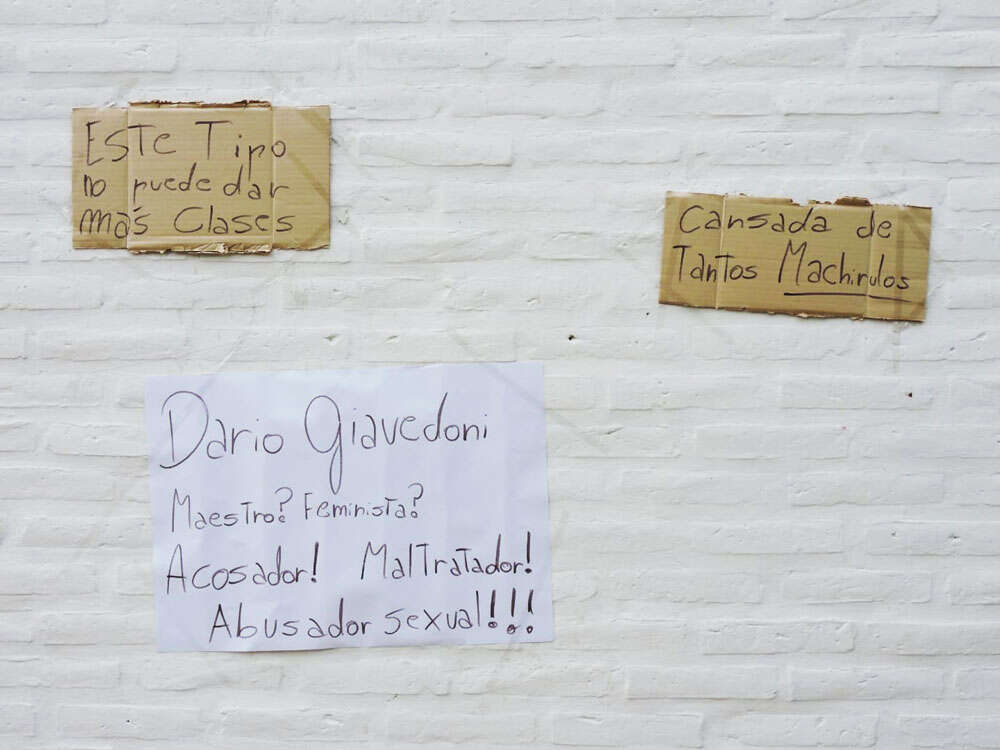 Este Tipo
no puede dar
más Clases
Cansada de
Tantos Machirulos
Dario Giavedoni
Maestro? Feminista?
Acosador! Maltratador!
Abusador sexual!!!